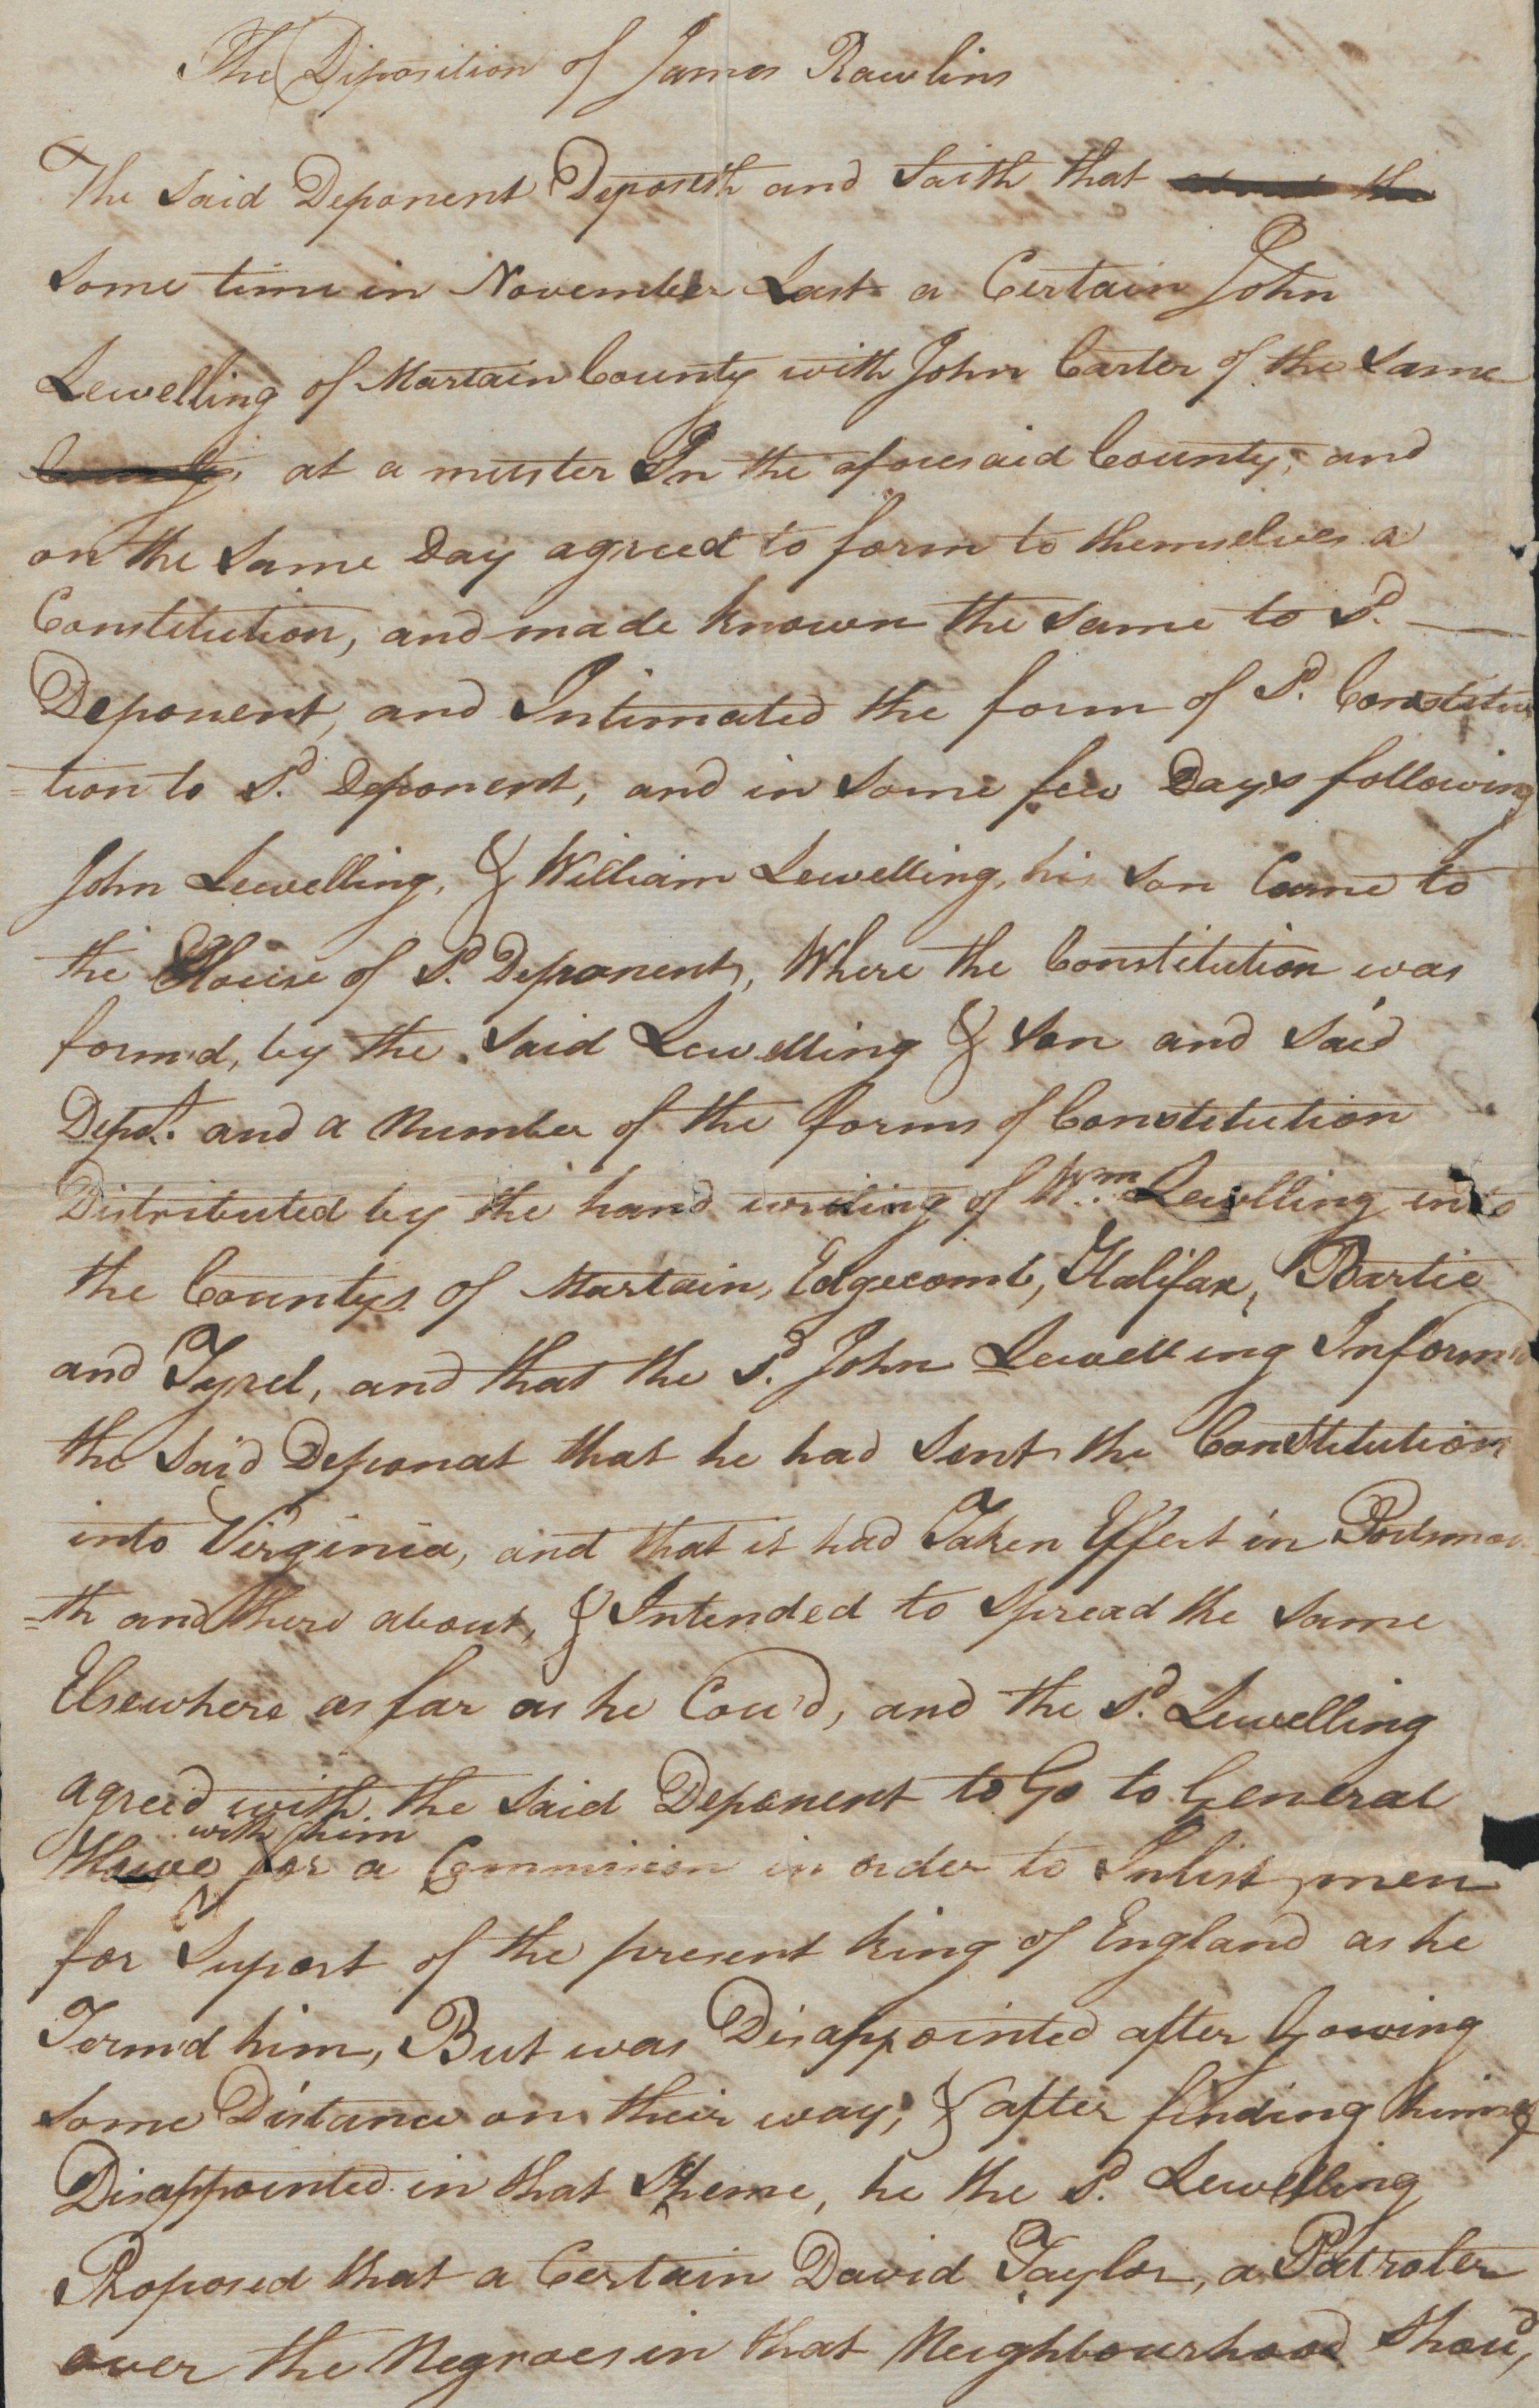 The Diposition of James Rawlins
The Said Deponent Deposeth and Saith that
Some time in November Last a Certain John
Lewelling of Martain County with John Carter of the Same
County at a muster In the aforesaid County, and
on the Same Day agreed to form to themselves a
Constitution, and made known the Same to Sd.
Deponent, and Intimated the form of Sd. Constitu
=tion to Sd. Deponent, and in Some few Days following
John Lewelling, & William Lewelling, his Son Came to
the House of Sd. Deponent, Where the Constitution was
form'd, by the Said Lewelling & Son and Said
Depot. and a Number of the forms of Constitution
Distributed by the hand writing of Wm. Lewelling into
the Countys of Martain, Edgecomb, Halifax, Bartie
and Tyrel, and that the Sd. John Lewelling Inform'd
the Said Deponat that he had Sent the Constitution
into Virginia, and that it had Taken Effect in Portsmou
=th and there about, & Intended to Spread the Same
Elsewhere as far as he Cou'd, and the Sd. Lewelling
agreed with the Said Deponent to Go to General
with him
Howe for a Commision in order to Inlist men
for Suport of the present king of England as he
Term'd him, But was Disappointed after Gowing
Some Distance on their way; & after finding himself
Disappointed in that Skeme, he the Sd. Lewelling
Proposed that a Certain David Taylor, a Patroler
over the Negroes in that Neighbourhood Shou'd,